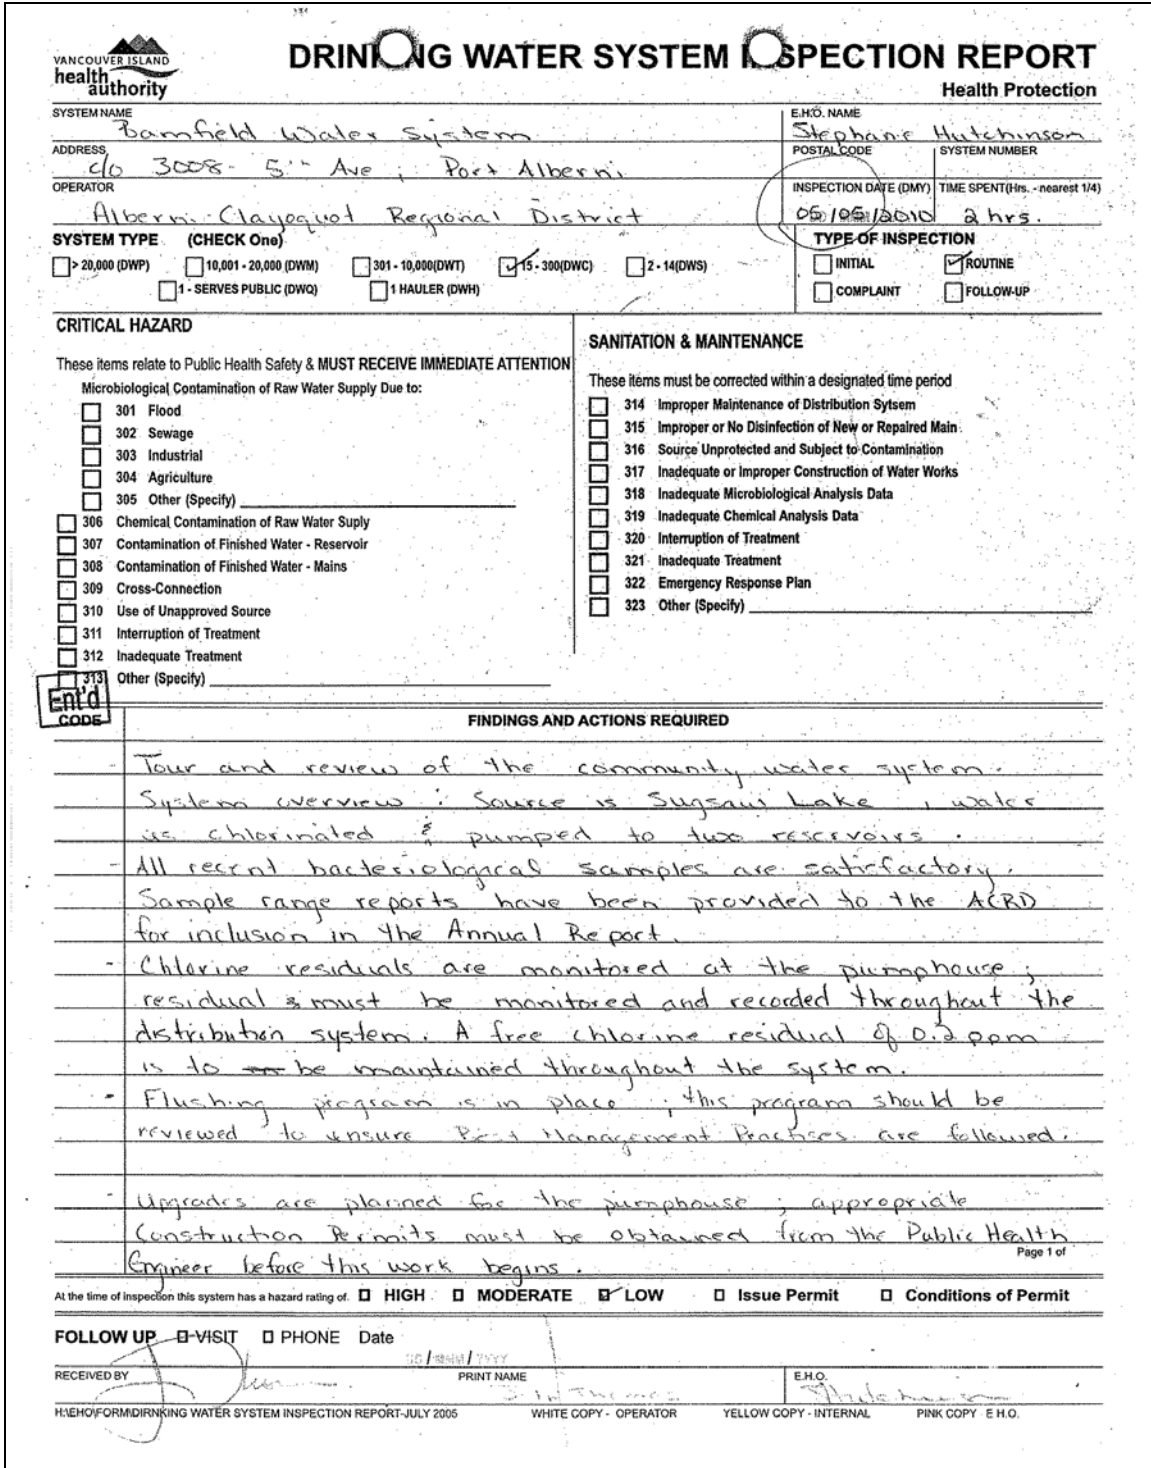 VANCOUVER ISLAND
health
authority
DRINKING WATER SYSTEM INSPECTION REPORT
Health Protection
SYSTEM NAME
Bamfield Water System
E.H.O. NAME
Stephanie Hutchinson
ADDRESS
c/o 3008 - 5th Ave, Port Alberni
POSTAL CODE SYSTEM NUMBER
OPERATOR
Alberni-Clayoquot Regional District
INSPECTION DATE (DMY) TIME SPENT(Hrs. - nearest 1/4)
05/05/2010 2 hrs.
SYSTEM TYPE (CHECK One)
> 20,000 (DWP) 10,001 - 20,000 (DWM) 301 - 10,000(DWT) 15 - 300(DWC) 2 - 14(DWS)
1 - SERVES PUBLIC (DWQ) 1 HAULER (DWH)
TYPE OF INSPECTION
INITIAL ROUTINE
COMPLAINT FOLLOW-UP
CRITICAL HAZARD
These items relate to Public Health Safety & MUST RECEIVE IMMEDIATE ATTENTION
Microbiological Contamination of Raw Water Supply Due to:
301 Flood
302 Sewage
303 Industrial
304 Agriculture
305 Other (Specify)
306 Chemical Contamination of Raw Water Suply
307 Contamination of Finished Water - Reservoir
308 Contamination of Finished Water - Mains
309 Cross-Connection
310 Use of Unapproved Source
311 Interruption of Treatment
312 Inadequate Treatment
313 Other (Specify)
SANITATION & MAINTENANCE
These items must be corrected within a designated time period
314 Improper Maintenance of Distribution Sytsem
315 Improper or No Disinfection of New or Repaired Main
316 Source Unprotected and Subject to Contamination
317 Inadequate or Improper Construction of Water Works
318 Inadequate Microbiological Analysis Data
319 Inadequate Chemical Analysis Data
320 Interruption of Treatment
321 Inadequate Treatment
322 Emergency Response Plan
323 Other (Specify)
Ent'd
CODE FINDINGS AND ACTIONS REQUIRED
- Tour and review of the community water system.
System overview: Source is Sugsaw Lake, water
is chlorinated & pumped to two reservoirs.
- All recent bacteriological samples are satisfactory.
Sample range reports have been provided to the ACRD
for inclusion in the Annual Report.
- Chlorine residuals are monitored at the pumphouse;
residuals must be monitored and recorded throughout the
distribution system. A free chlorine residual of 0.2 ppm
is to be maintained throughout the system.
- Flushing program is in place; this program should be
reviewed to ensure Best Management Practises are followed.
- Upgrades are planned for the pumphouse; appropriate
Construction Permits must be obtained from the Public Health
Page 1 of
Engineer before this work begins.
At the time of inspection this system has a hazard rating of: HIGH MODERATE LOW Issue Permit Conditions of Permit
FOLLOW UP VISIT PHONE Date
RECEIVED BY PRINT NAME E.H.O.
H:\EHO\FORM\DIRNKING WATER SYSTEM INSPECTION REPORT-JULY 2005 WHITE COPY - OPERATOR YELLOW COPY - INTERNAL PINK COPY E H.O.